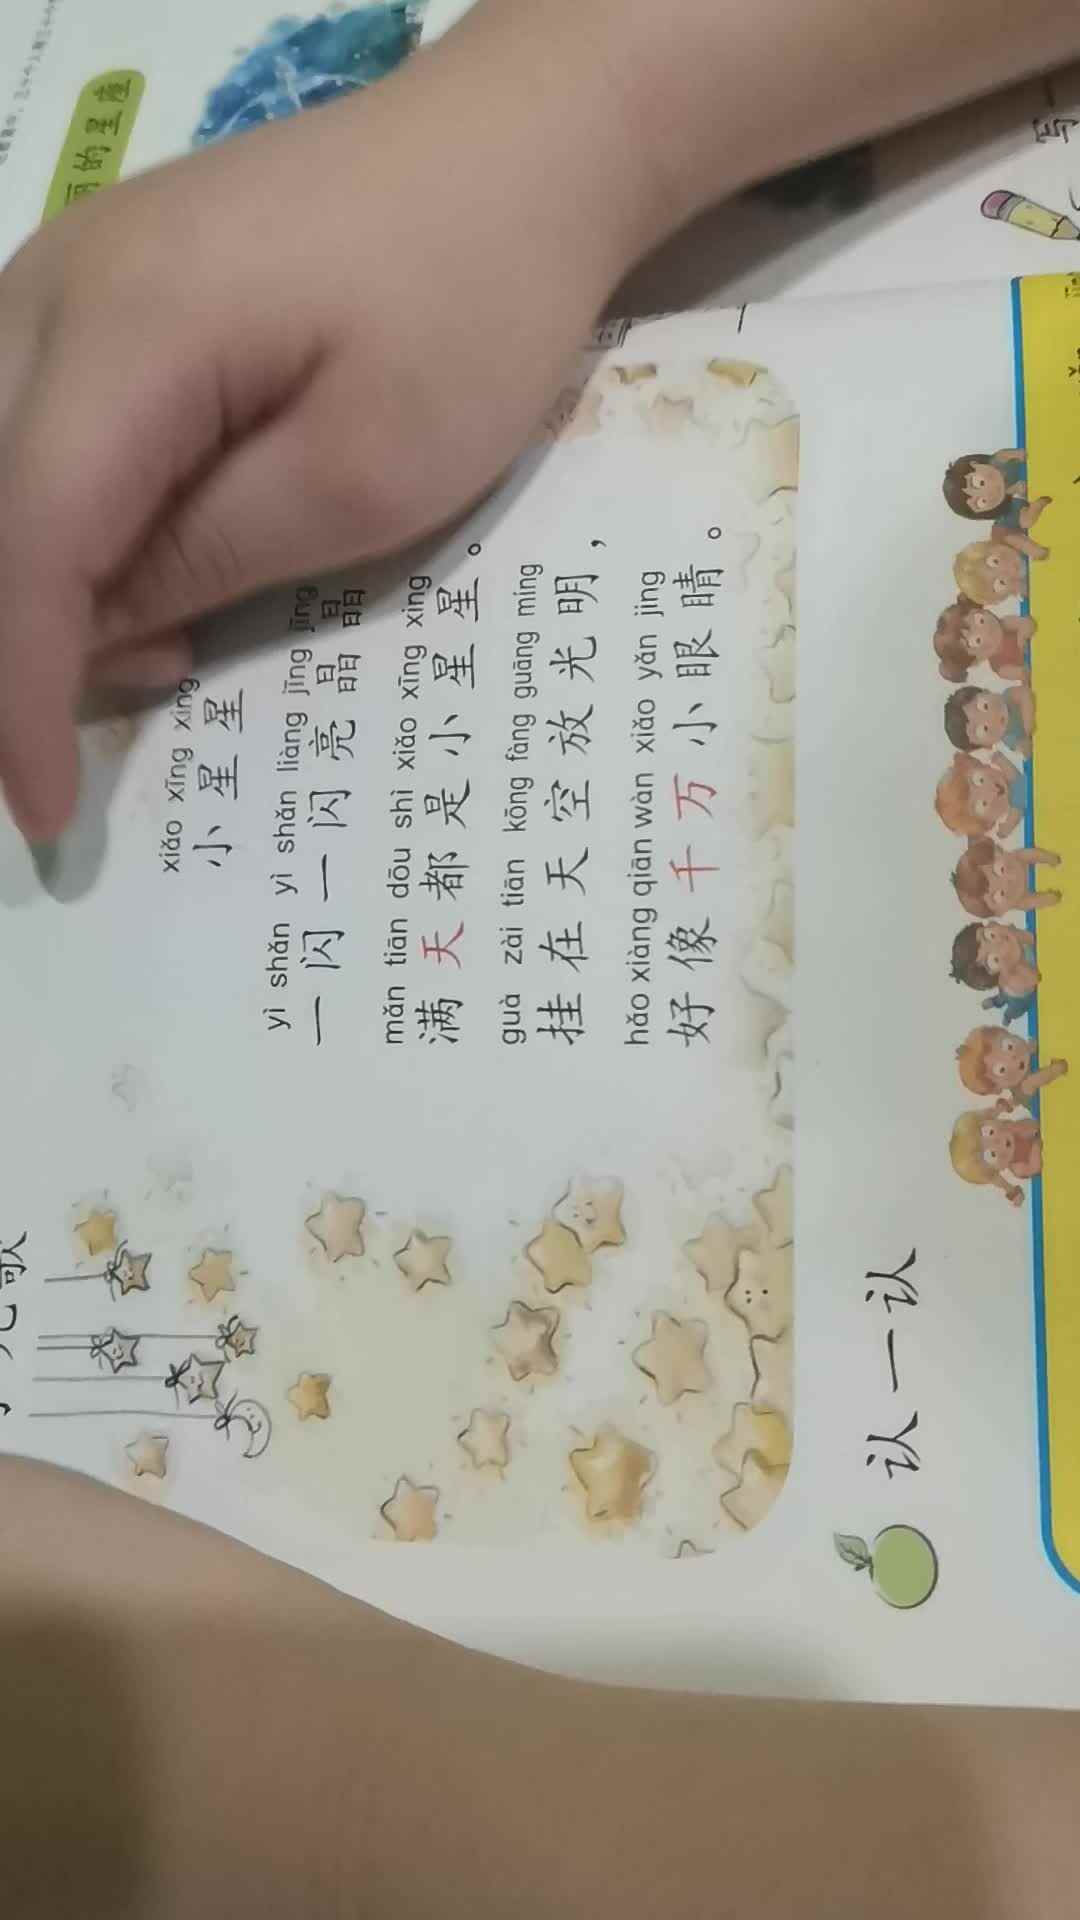 的星座
儿歌
xiǎo xīng xing
小星星
yì shǎn yì shǎn liàng jīng jīng
一闪一闪亮晶晶
mǎn tiān dōu shì xiǎo xīng xing
满天都是小星星。
guà zài tiān kōng fàng guāng míng
挂在天空放光明，
hǎo xiàng qiān wàn xiǎo yǎn jing
好像千万小眼睛。
认一认
写一